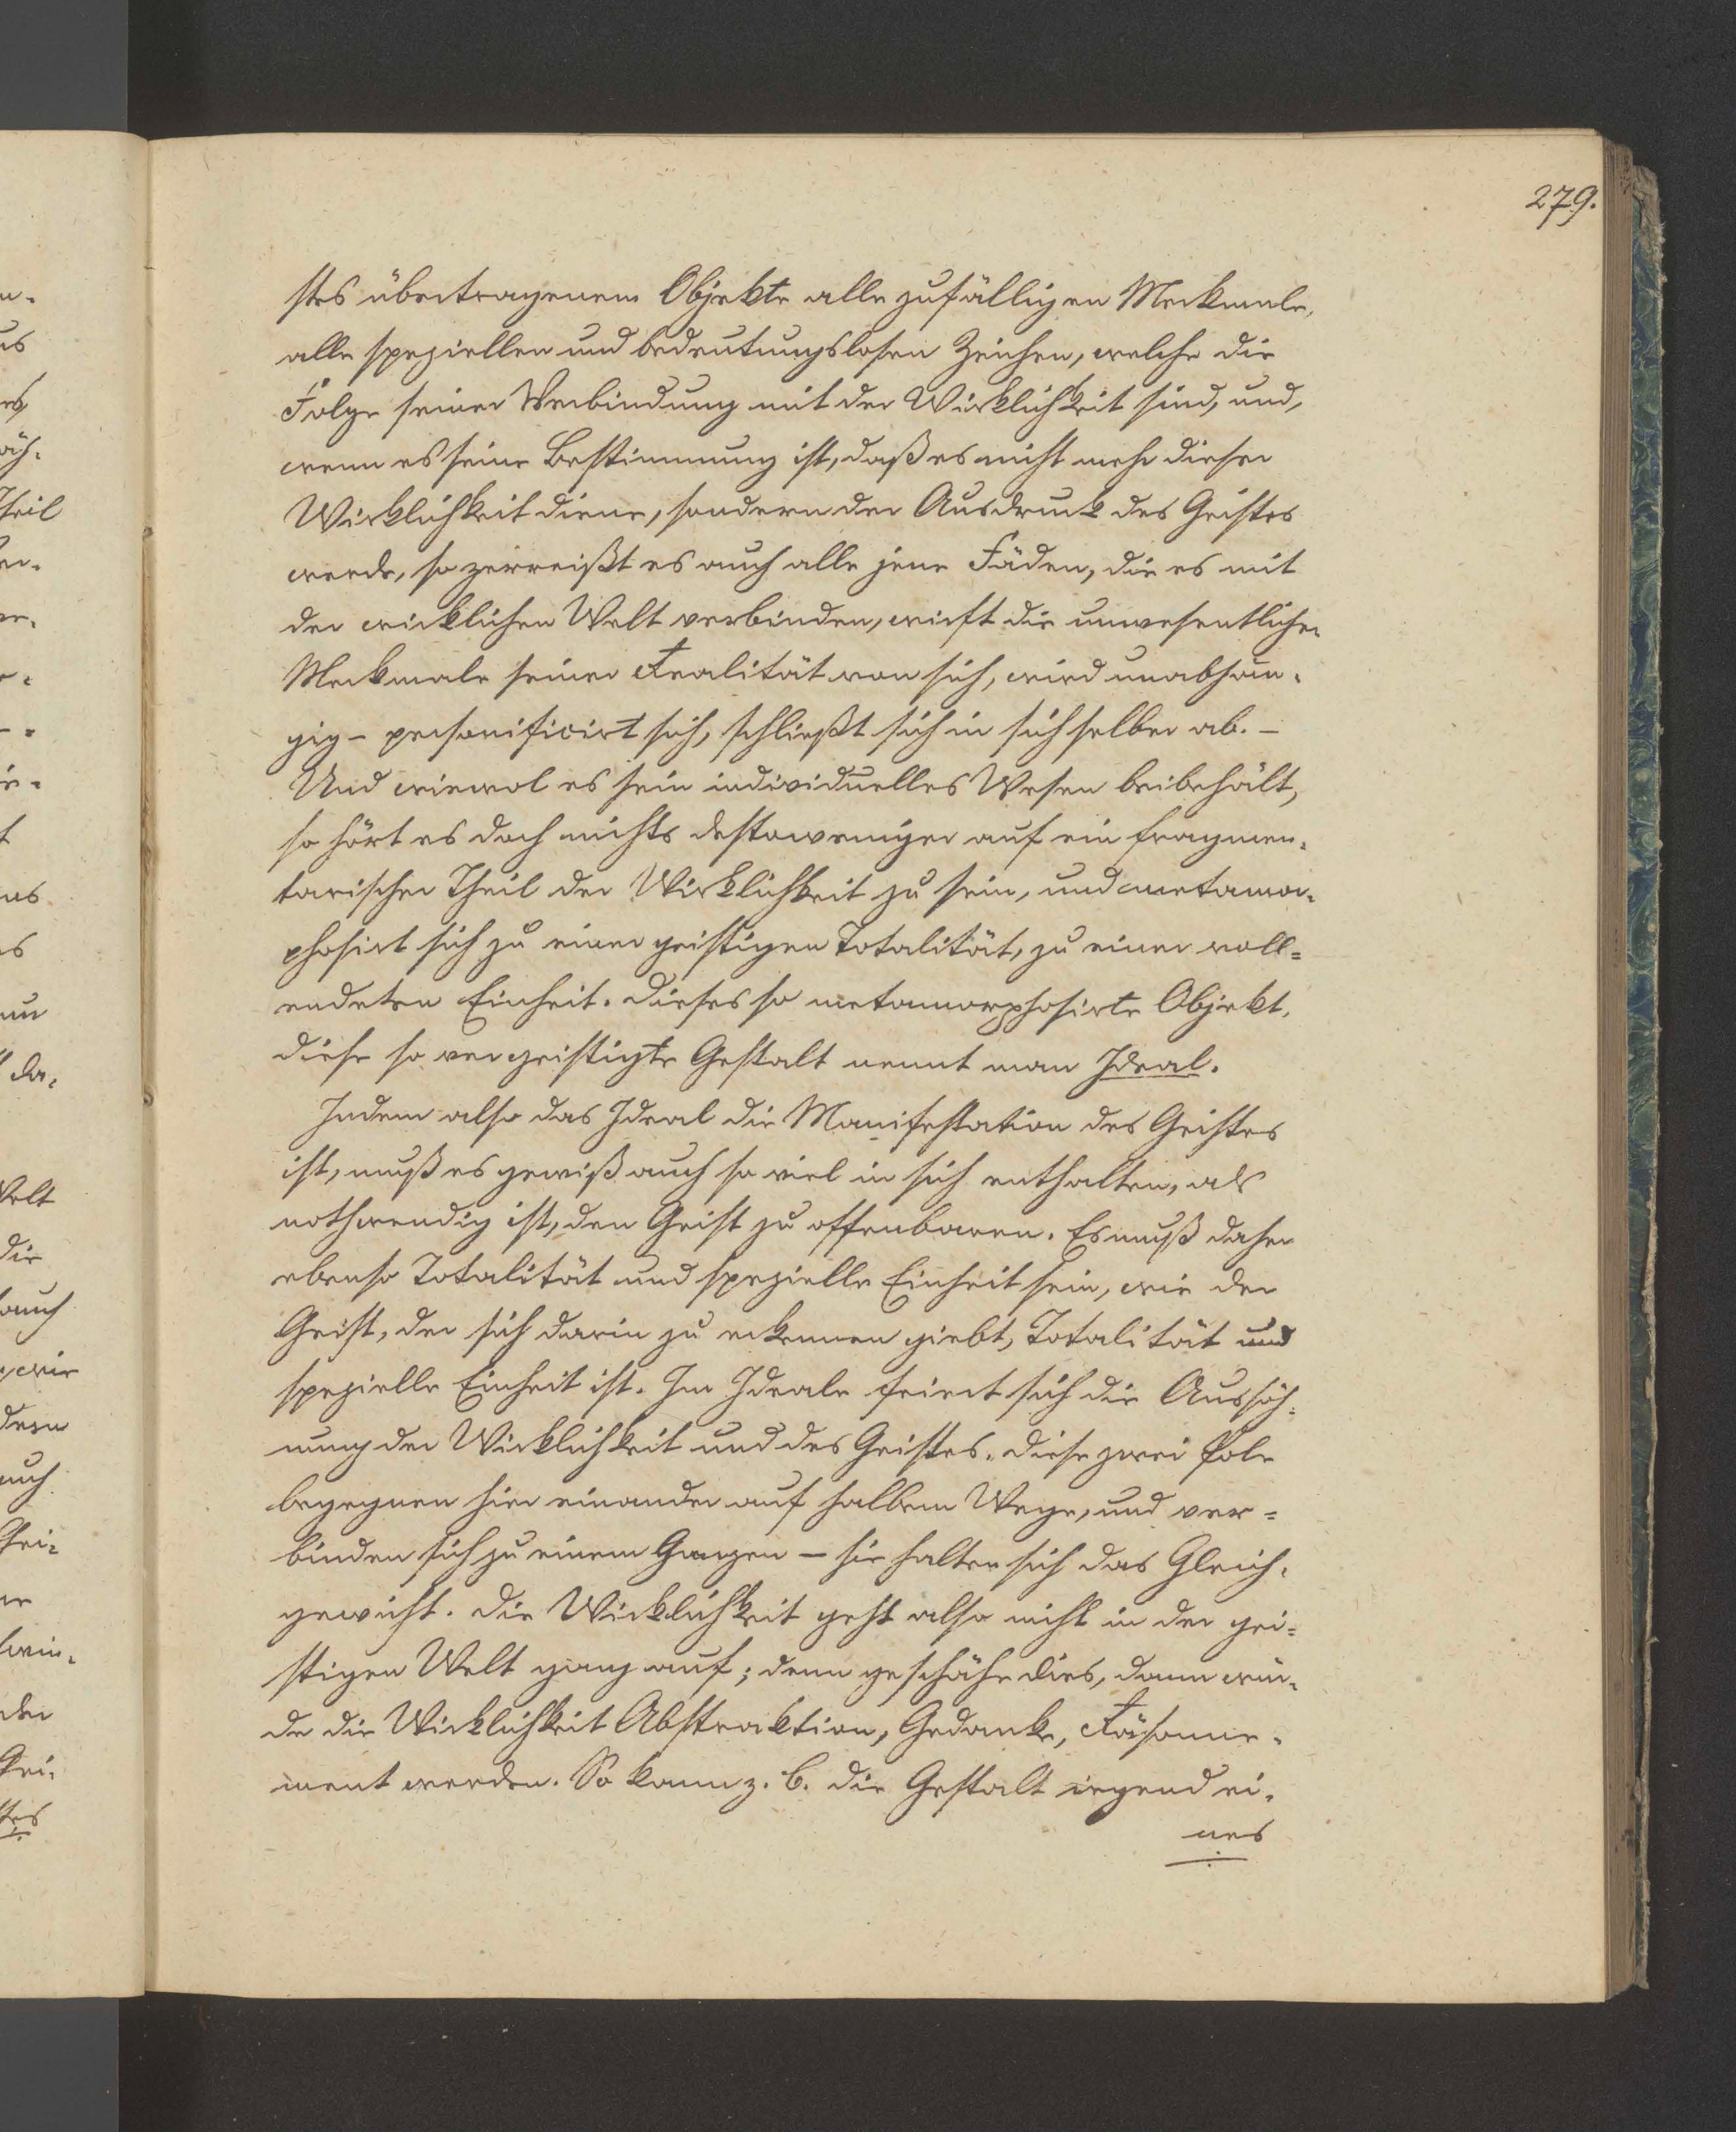 279.
stes übertragenem Objekte alle zufälligen Merkmale,
alle speziellen und bedeutungslosen Zeichen, welche die
Folge seiner Verbindung mit der Wirklichkeit sind, und,
wenn es seine Bestimmung ist, daß es nicht mehr dieser
Wirklichkeit diene, sondern der Ausdruck des Geistes
werde, so zerreißt es auch alle jene Fäden, die es mit
der wirklichen Welt verbinden, wirft die unwesentlichen
Merkmale seiner Realität von sich, wird unabhän-
gig – personificirt sich, schließt sich in sich selber ab. –
Und wiewol es sein individuelles Wesen beibehält,
so hört es doch nichts destoweniger auf ein fragmen-
tarischer Theil der Wirklichkeit zu sein, und metamor-
phosirt sich zu einer geistigen Totalität, zu einer voll=
endeten Einheit. Dieses so metamorphosirte Objekt,
diese so vergeistigte Gestalt nennt man Ideal.
Indem also das Ideal die Manifestation des Geistes
ist, muß es gewiß auch so viel in sich enthalten, als
nothwendig ist, den Geist zu offenbaren. Es muß daher
ebenso Totalität und spezielle Einheit sein, wie der
Geist, der sich darin zu erkennen giebt, Totalität und
spezielle Einheit ist. Im Ideale feiert sich die Aussöh-
nung der Wirklichkeit und des Geistes. Diese zwei Pole
begegnen hier einander auf halbem Wege, und ver=
binden sich zu einem Ganzen – sie halten sich das Gleich-
gewicht. Die Wirklichkeit geht also nicht in der gei=
stigen Welt ganz auf; denn geschähe dies, dann wür-
de die Wirklichkeit Abstraktion, Gedanke, Räsonne-
ment werden. So kann z. B. die Gestalt irgend ei-
nes